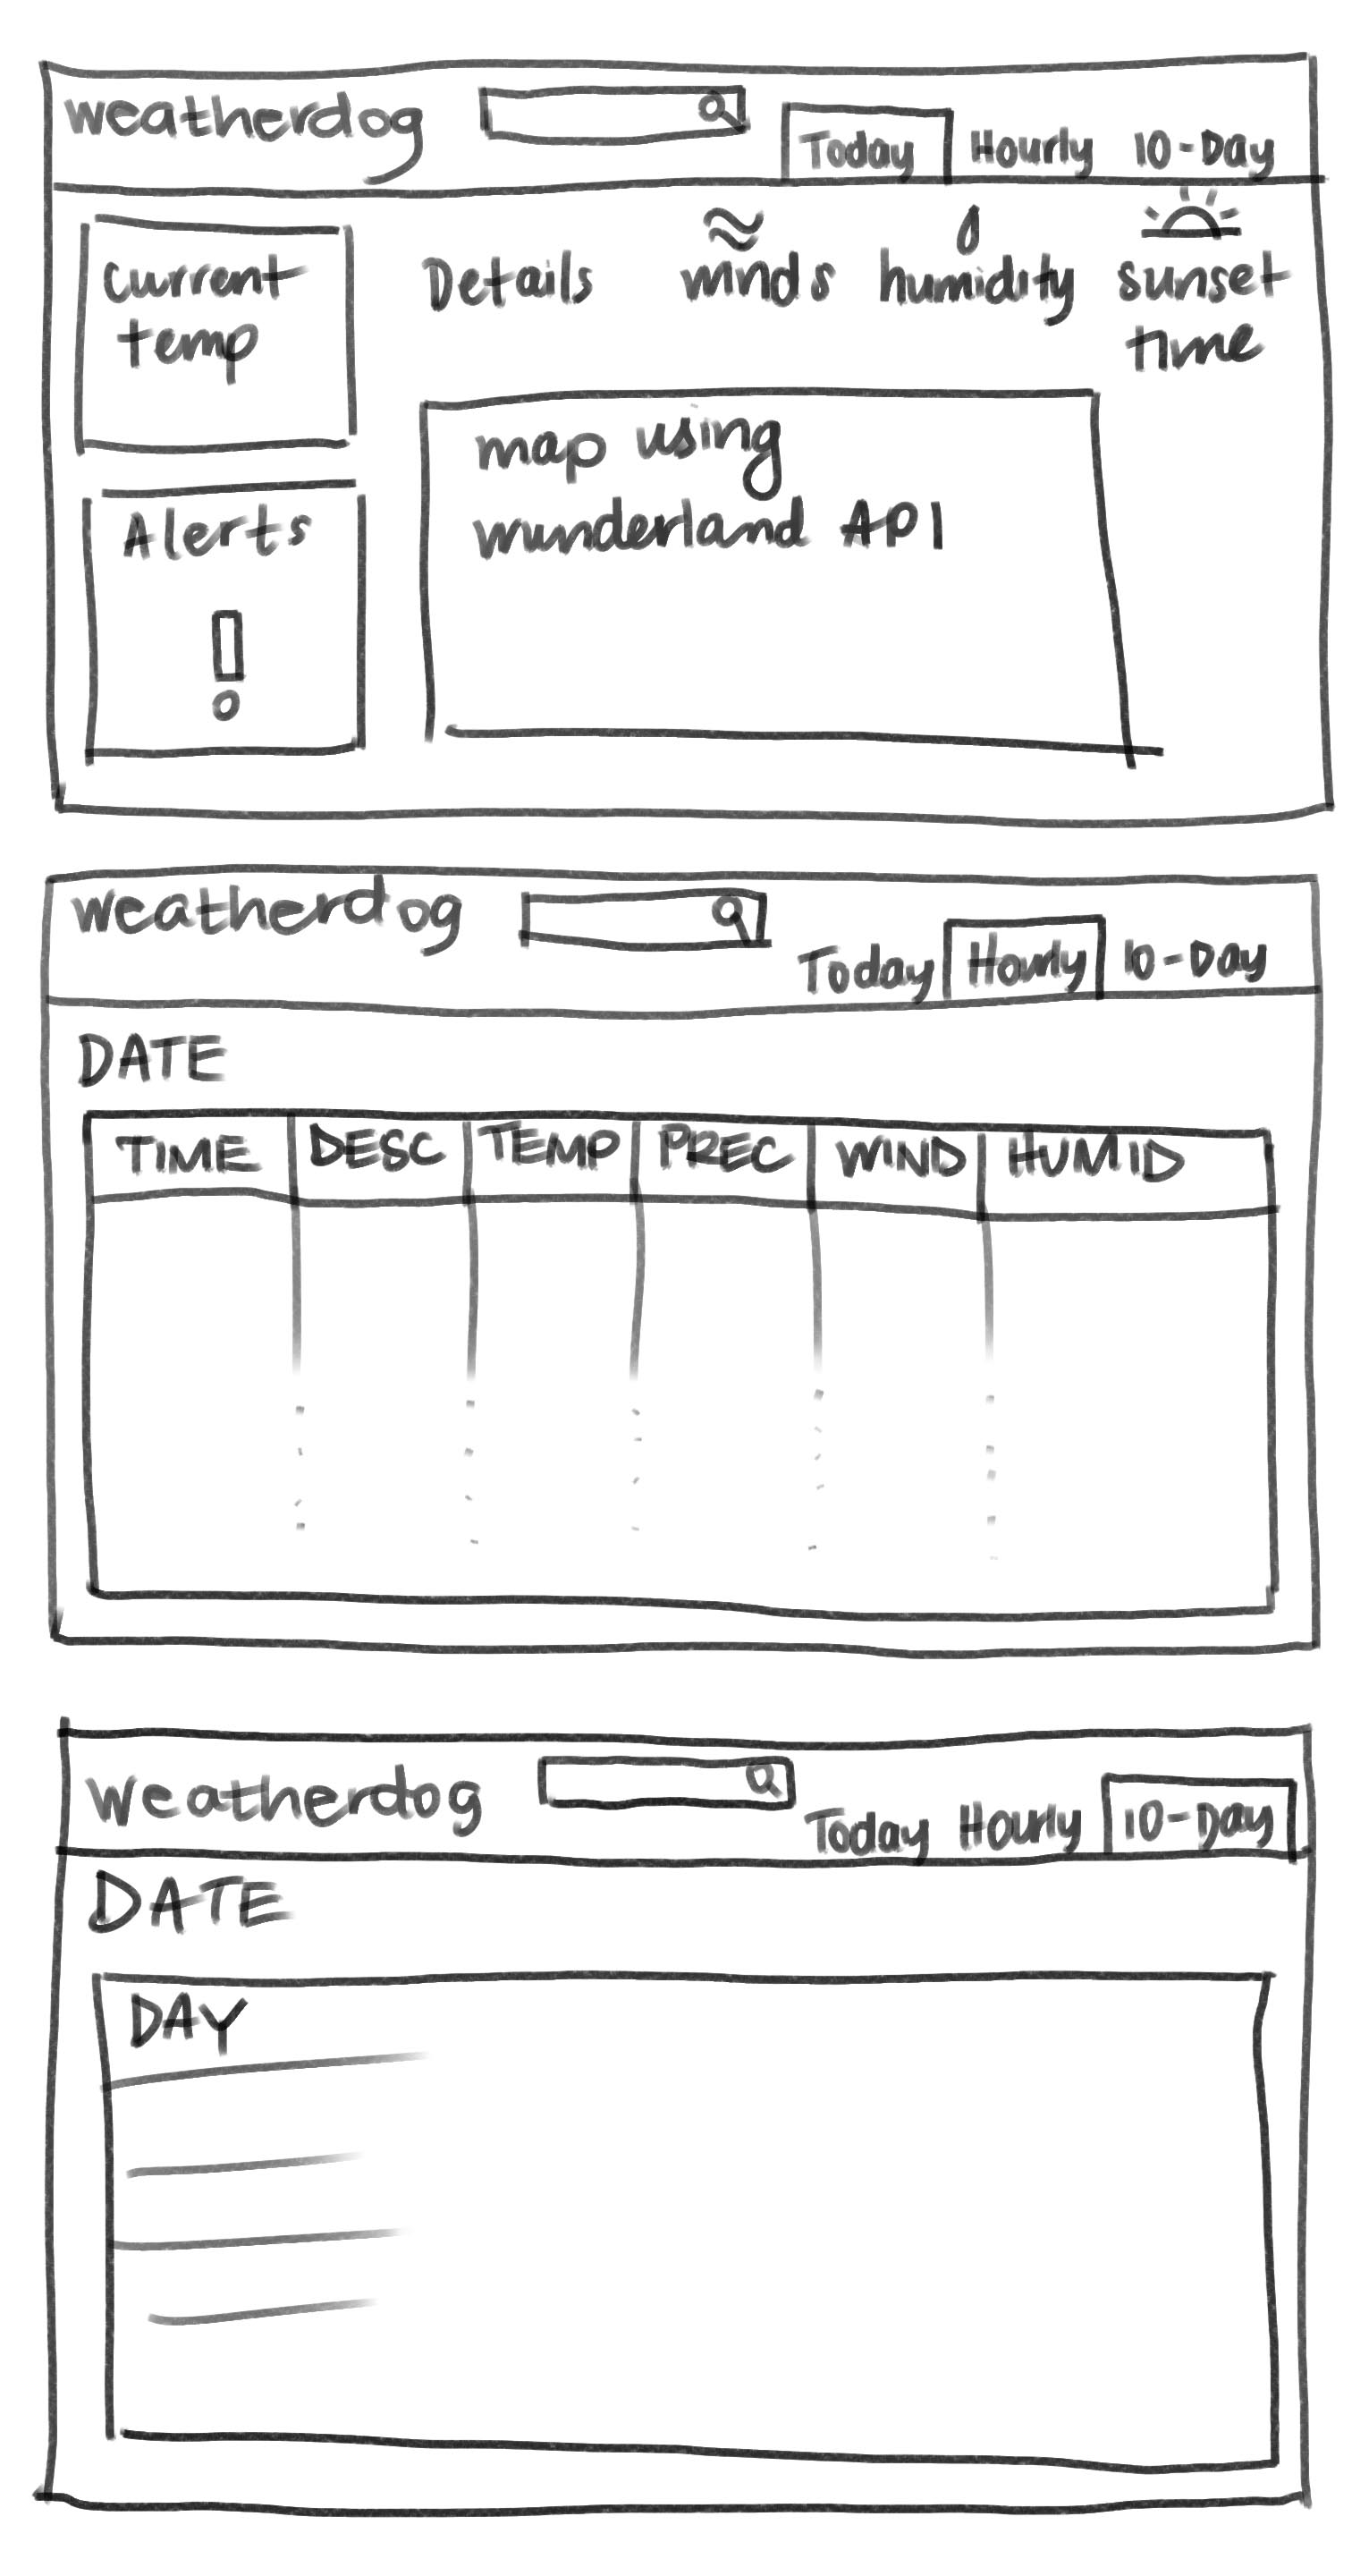 weatherdog
Today Hourly 10-Day
Current
temp
Details winds humidity sunset
time
map using
wunderland API
Alerts
!
weatherdog
Today Hourly 10-Day
DATE
TIME DESC TEMP PREC WIND HUMID
weatherdog
Today Hourly 10-Day
DATE
DAY